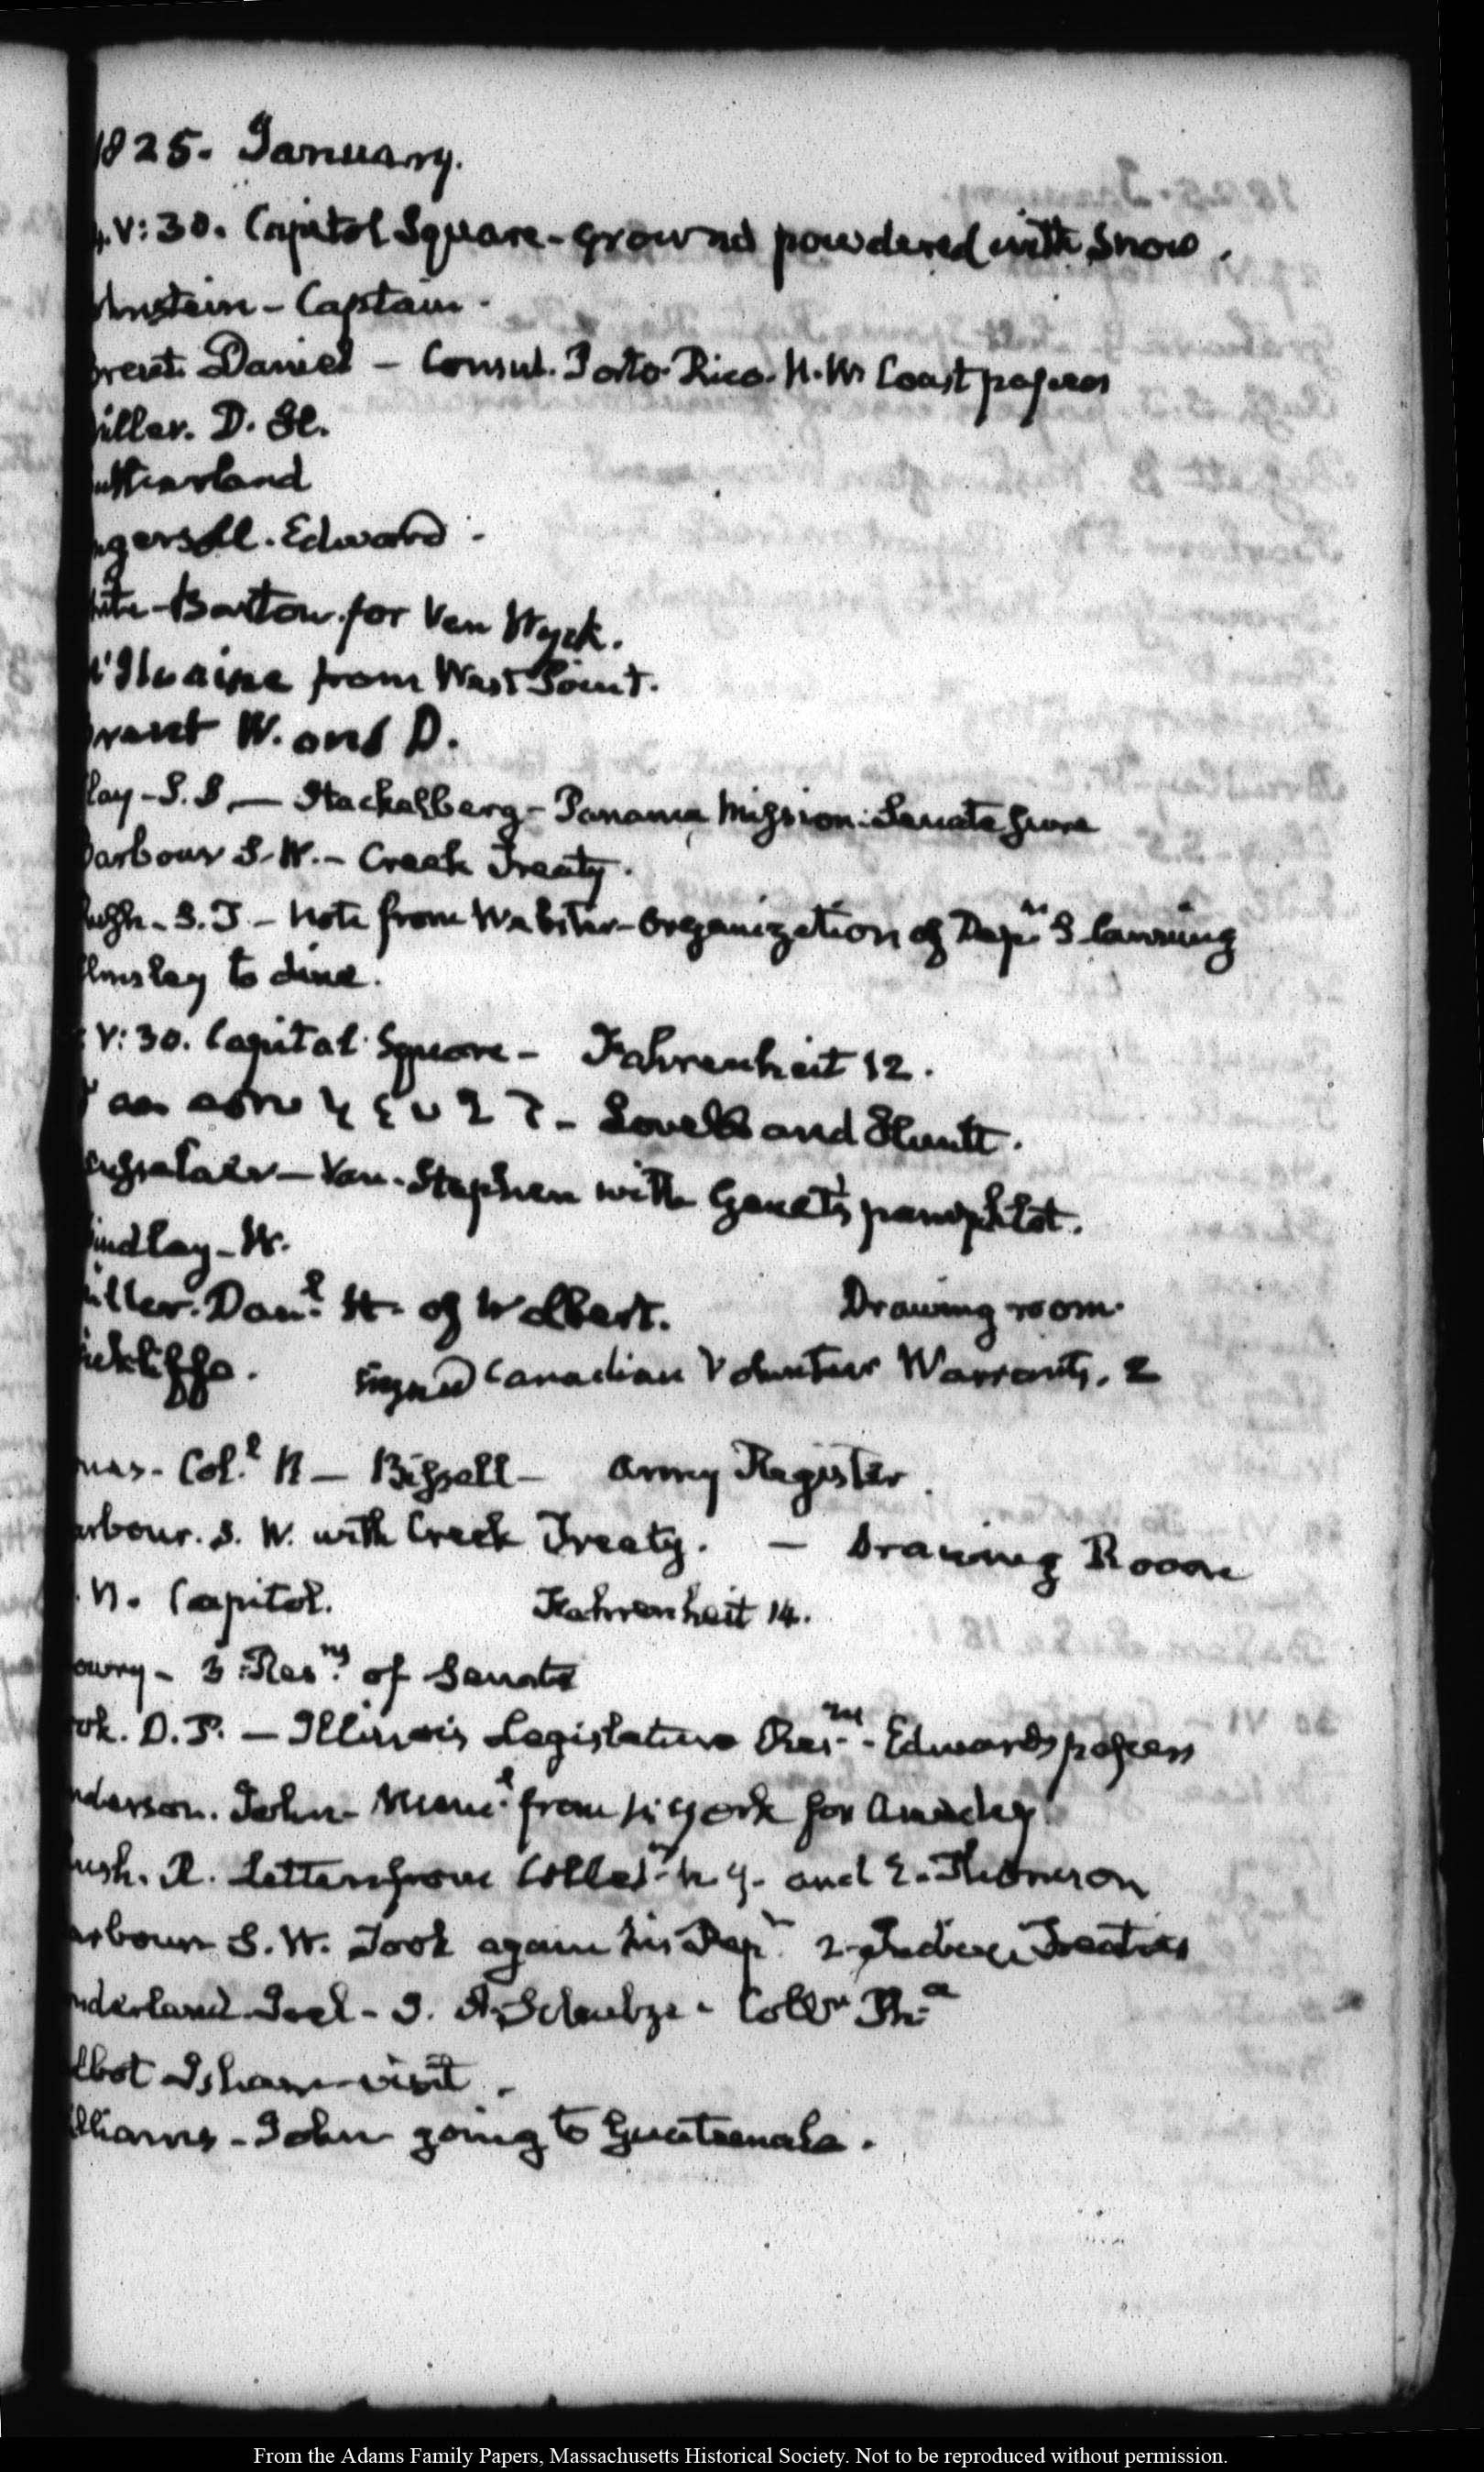 1825. January.
V:30. Capitol Square - ground powdered with Snow.
hnstein - Captain.
Brent. Daniel - Consul. Porto Rico. N.W. Coast papers
iller. D. H.
utherland
ngersoll. Edward.
hite - Barton for Van Wyck.
'Ilvaine from West Point.
Brent W. and D.
lay - S.S. - Stackelberg - Panama Mission: Senate
Barbour S.W. - Creek Treaty.
S.T. - Note from Webster - Organization of Dept.
lmsley to dine.
V:30. Capitol Square - Fahrenheit 12.
Lovell and Hunt.
nsselaer - Van. Stephen with Genet's pamphlet.
Findlay - W.
iller. Danl. H. of
Drawing room.
ickliffe. Signed Canadian Volunteer Warrants. 2
Coll. N - Bissell - Army Register.
arbour. S. W. with Creek Treaty. - Drawing Room
Capitol. Fahrenheit 14.
owry - 3 Resns. of Senate
ok. D.P. - Illinois Legislature Resns. - Edwards papers
nderson. John - Meml. from N. York for
ush. R. Letters from N.Y. and
arbour S.W. Took again his Rept. 2 Indian Treaties
nderland Joel - J. A. Schulze -
lbot Isham - visit.
lliams - John going to Guatemala.
From the Adams Family Papers, Massachusetts Historical Society. Not to be reproduced without permission.